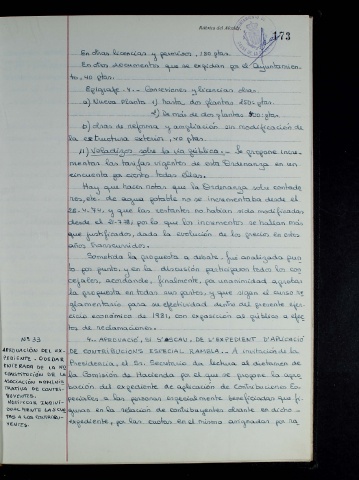 Rúbrica del Alcalde,
173
En otras licencias y permisos, 180 ptas.
En otros documentos que se expidan por el Ayuntamien
to, 40 ptas.
Epígrafe 4.- Concesiones y licencias obras.
a) Nueva Planta 1) hasta dos plantas 250 ptas.
2) De más de dos plantas 500 ptas.
b) obras de reforma y ampliación sin modificación de
la estructura exterior, 40 ptas.
11) Voladizos sobre la vía pública.- Se propone incre
mentar las tarifas vigentes de esta Ordenanza en un
cincuenta por ciento todas ellas.
Hay que hacer notar que la Ordenanza sobre contado
res, etc. de agua potable no se incrementaba desde el
28-4-74, y que las restantes no habían sido modificadas
desde el 2-2-78; por lo que los incrementos se hallan más
que justificados, dada la evolución de los precios en estos
años transcurridos.
Sometida la propuesta a debate, fue analizada pun
to por punto, y en la discusión participaron todos los con
cejales, acordando, finalmente, por unanimidad aprobar
la propuesta en todas sus partes, y que sigan el curso re
glamentario para su efectividad dentro del presente ejer
cicio económico de 1981, con exposición al público a efec
tos de reclamaciones.
Nº 33
APROVACIÓN DEL EX-
PEDIENTE - QUEDAR
ENTERADA DE LA Mª
CONSTITUCIÓN DE LA
ASOCIACIÓN ADMINIS
TRATIVA DE CONTRI-
BUYENTES.
NOTIFICAR INDIVI-
DUALMENTE LAS CUO
TAS A LOS CONTRIBU-
YENTES.
4.- APROVACIÓ, SI S'ESCAU, DE L'EXPEDIENT D'APLICACIÓ
DE CONTRIBUCIONS ESPECIAL RAMBLA.- A invitación de la
Presidencia, el Sr. Secretario da lectura al dictamen de
la Comisión de Hacienda por el que se propone la apro
bación del expediente de aplicación de Contribuciones Es
peciales a las personas especialmente beneficiadas que fi
guran en la relación de contribuyentes obrante en dicho
expediente, por las cuotas en el mismo asignadas por ra